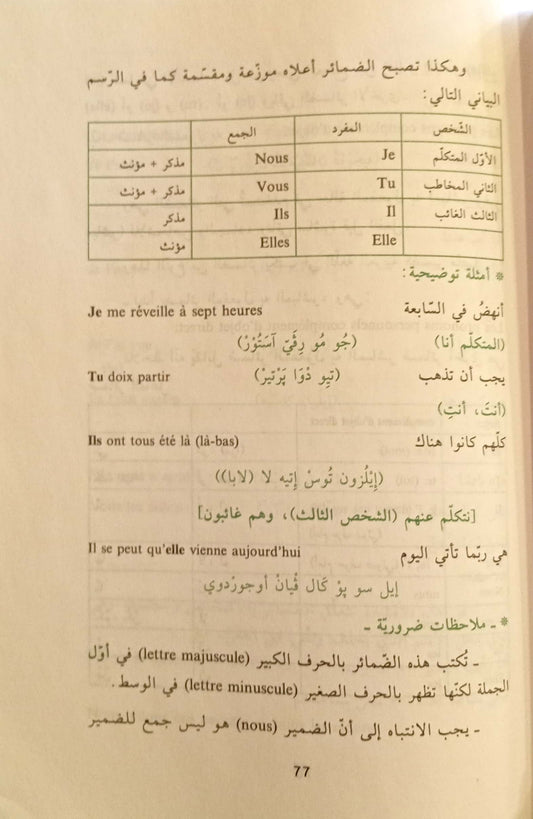 وهكذا تصبح الضمائر أعلاه موزّعة ومقسّمة كما في الرّسم
البياني التالي:
الشّخص المفرد الجمع
الأوّل المتكلّم Je Nous مذكر + مؤنث
الثاني المخاطب Tu Vous مذكر + مؤنث
الثالث الغائب Il Ils مذكر
Elle Elles مؤنث
* أمثلة توضيحية:
أنهضُ في السّابعة Je me réveille à sept heures
(المتكلّم أنا) (جُو مُو رِڤَيّ آسَتُوْرْ)
يجب أن تذهب (تيو دْوَا پَرْتيرْ) Tu doix partir
(أنتَ، أنتِ)
كلّهم كانوا هناك Ils ont tous été là (là-bas)
(إيْلْزون تُوسْ إتيه لا (لابا))
[نتكلّم عنهم (الشّخص الثالث)، وهم غائبون]
هي ربّما تأتي اليوم Il se peut qu'elle vienne aujourd'hui
إيل سو پوْ كَال ڤيانْ أوجورْدوي
* ـ ملاحظات ضروريّة ـ
ـ تُكتب هذه الضّمائر بالحرف الكبير (lettre majuscule) في أوّل
الجملة لكنّها تظهر بالحرف الصغير (lettre minuscule) في الوسط.
ـ يجب الانتباه إلى أنّ الضمير (nous) هو ليس جمع للضمير
77